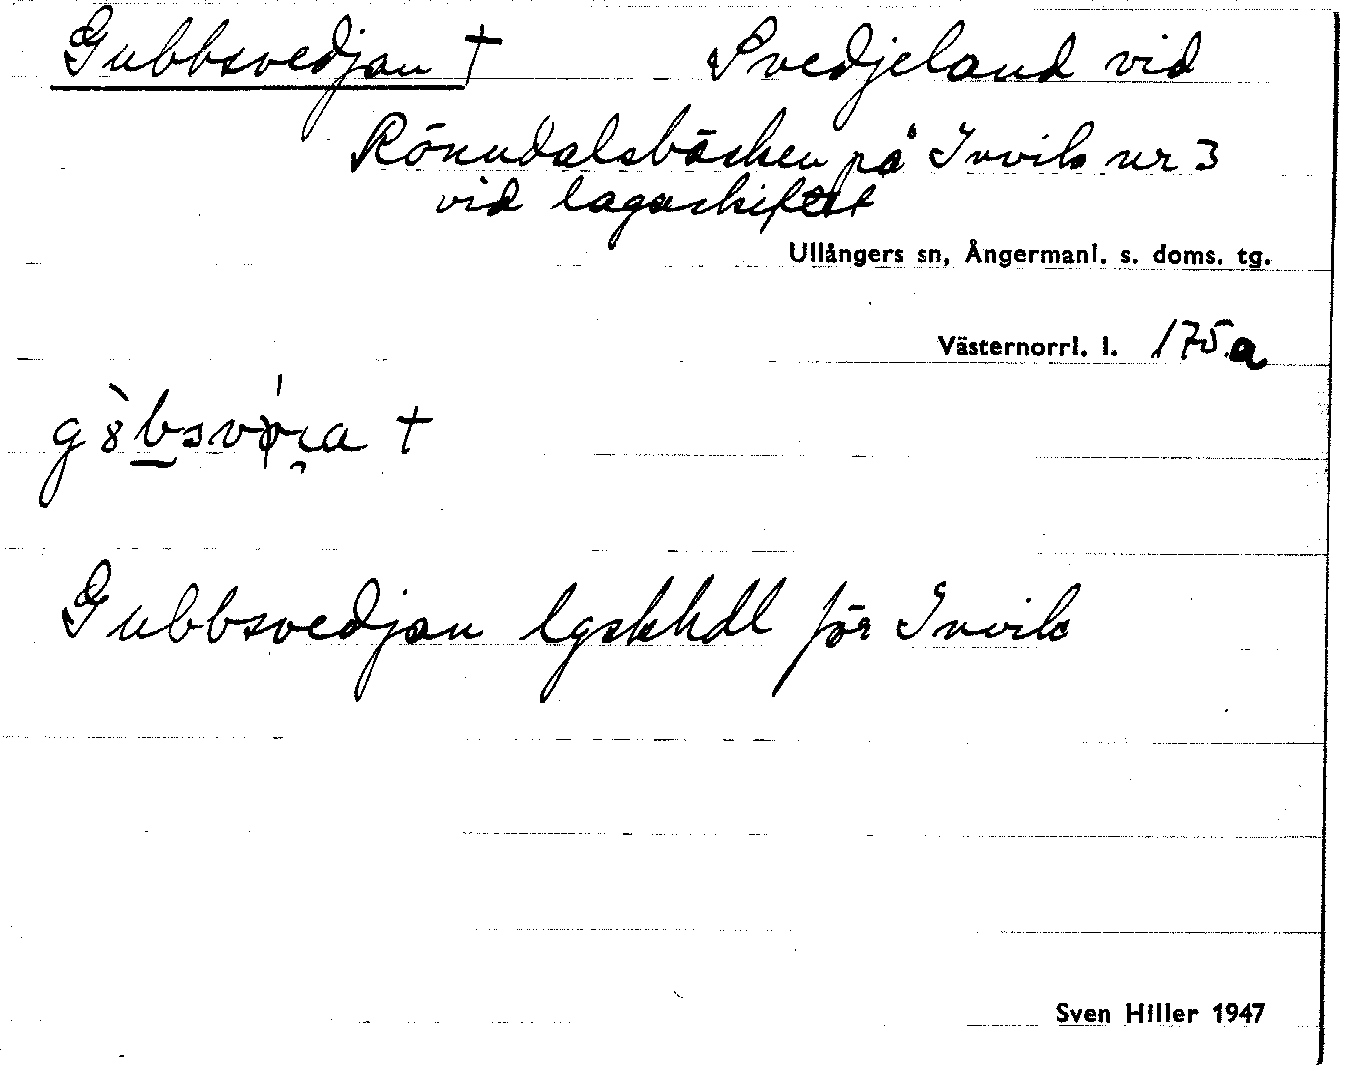 Gubbsvedjan † Svedjeland vid
Rönndalsbäcken på Invik nr 3
vid lagaskiftet
Ullångers sn, Ångermanl. s. doms. tg.
Västernorrl. l. 175.a
†
Gubbsvedjan lgskhdl för Invik
Sven Hiller 1947